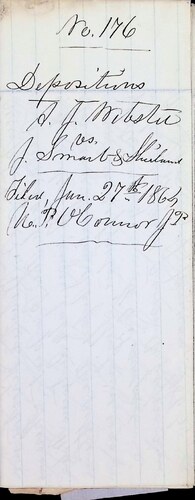 No. 176
Depositions
S. J. Webster
vs.
J. Smart &
Filed, Jan. 27th 1864
N. P. O'Connor JP